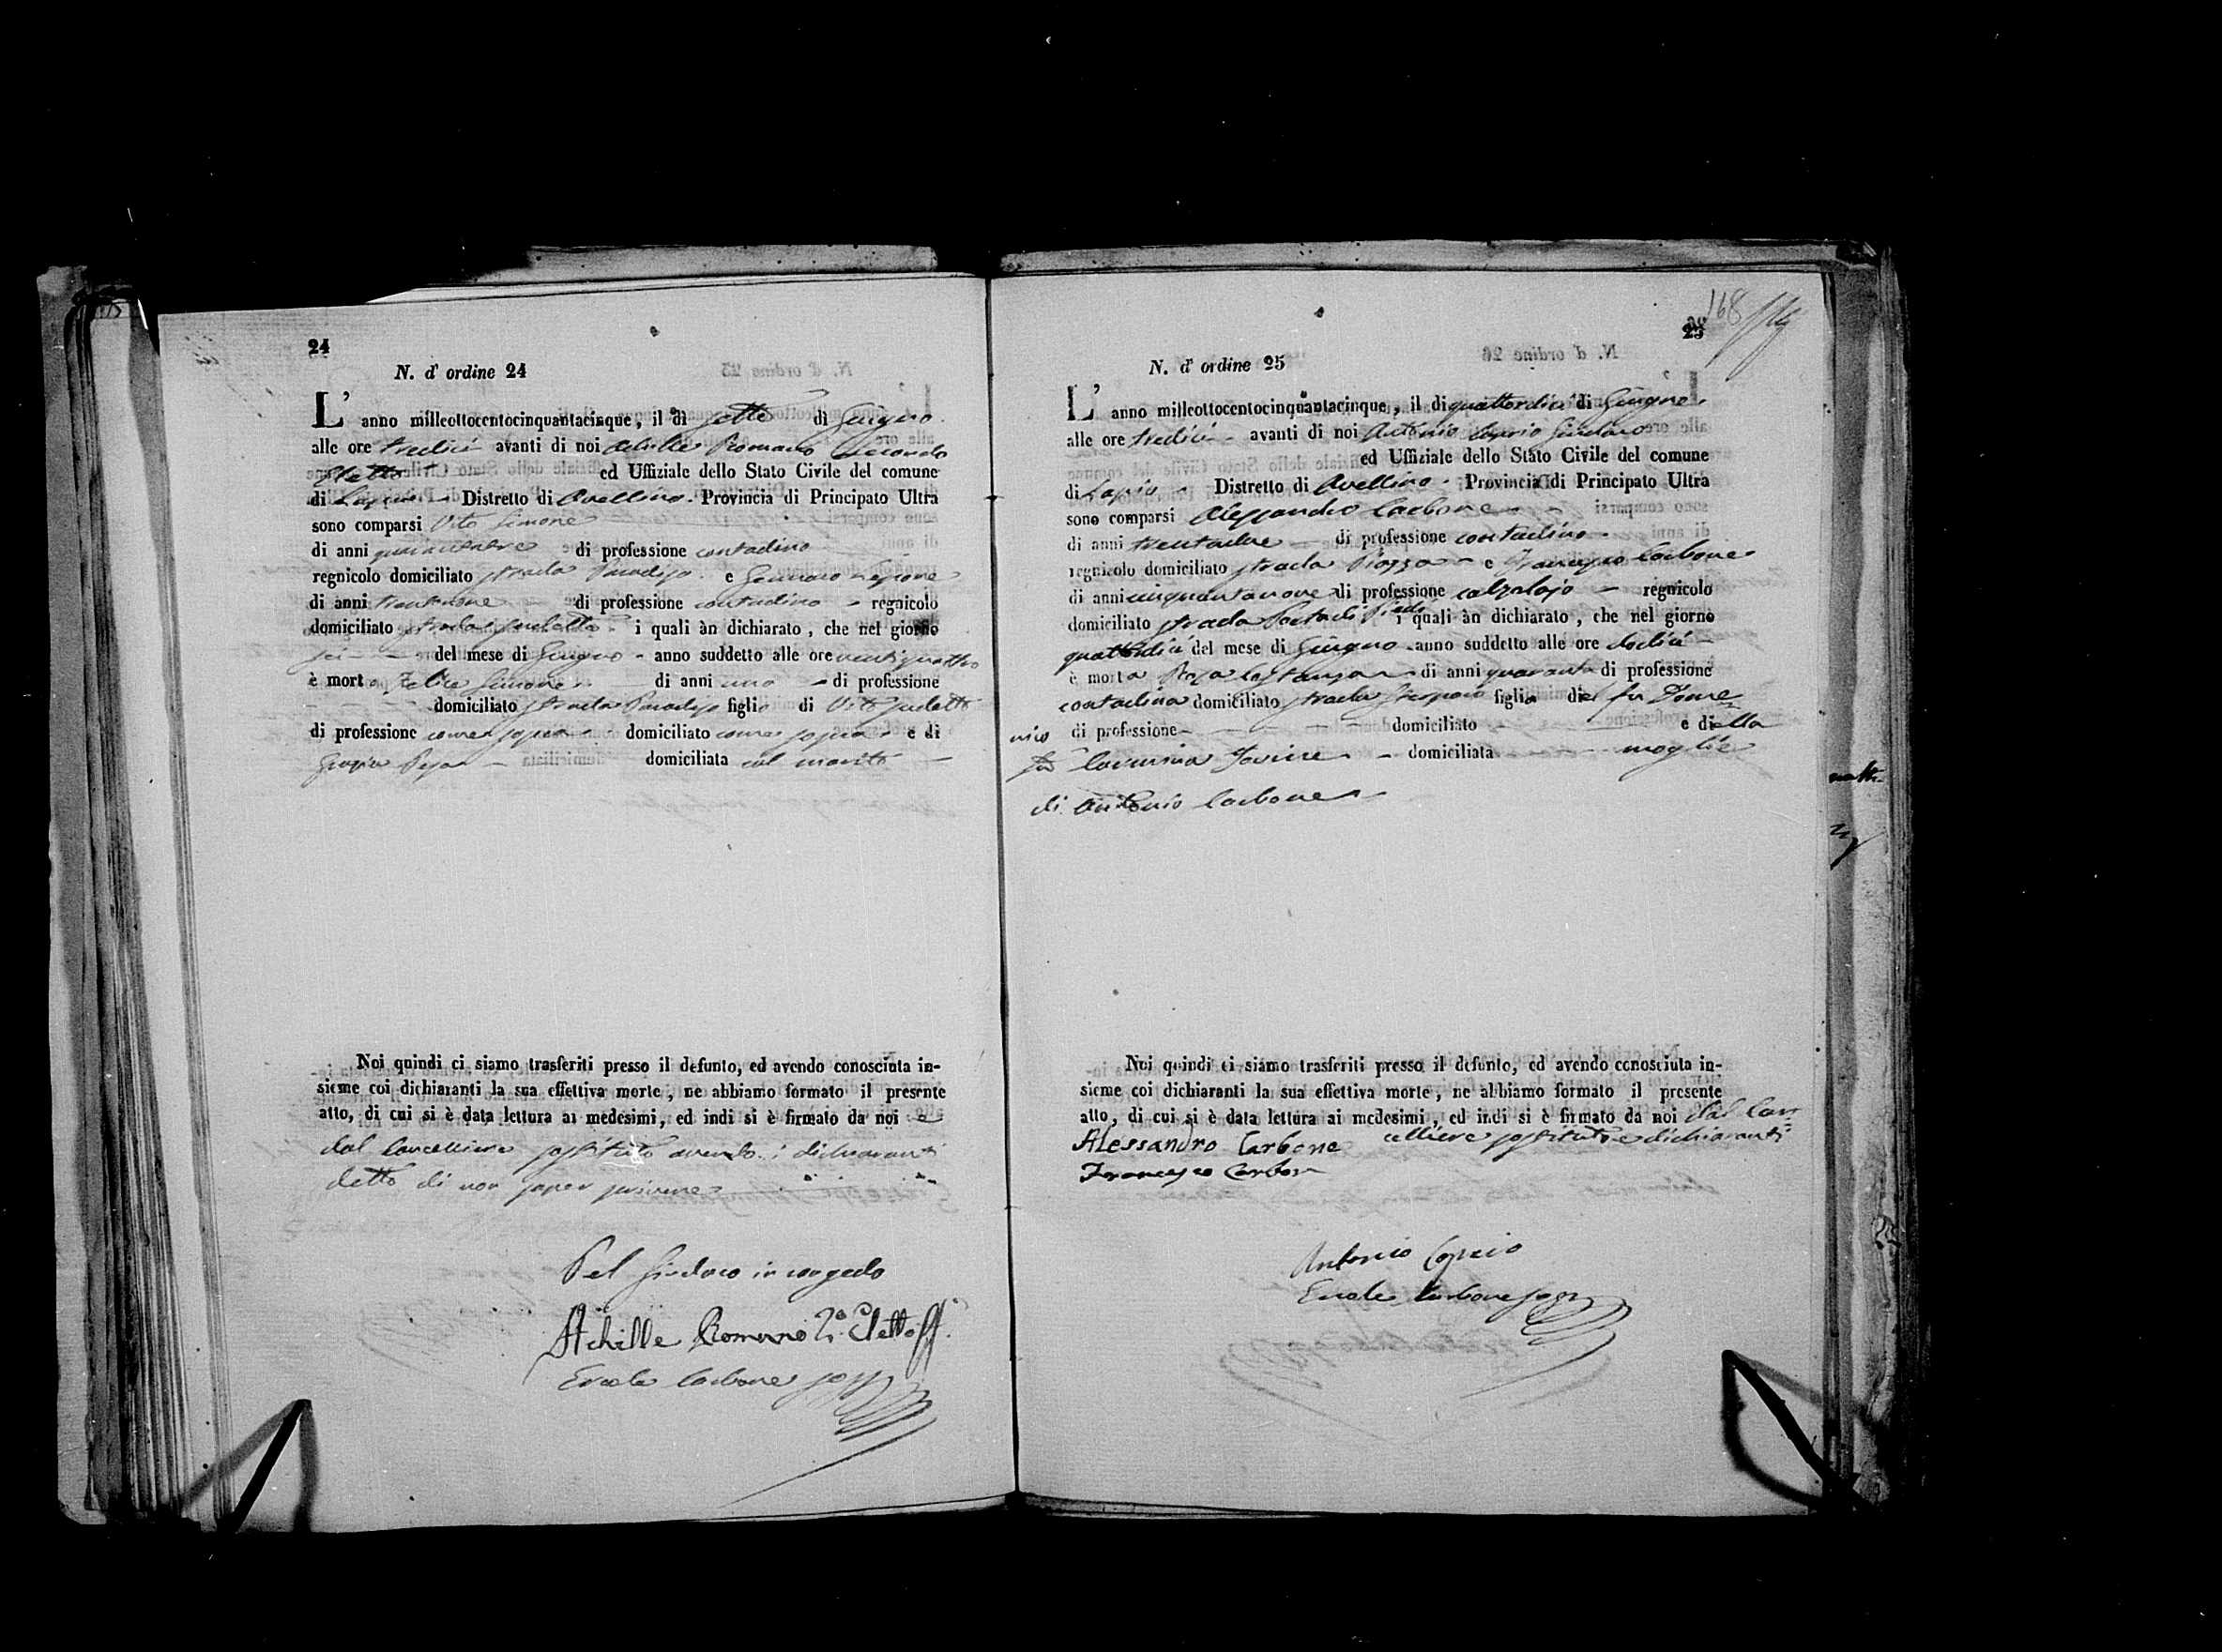 24
N. d' ordine 24
L' anno milleottocentocinquantacinque, il dì sette di Giugno
alle ore tredici avanti di noi Achille Romano Secondo
Eletto ed Uffiziale dello Stato Civile del comune
di Lapio Distretto di Avellino Provincia di Principato Ultra
sono comparsi Vito Simone
di anni di professione contadino
regnicolo domiciliato strada Paradiso e Gennaro
di anni trentanove di professione contadino regnicolo
domiciliato strada i quali àn dichiarato, che nel giorno
sei del mese di Giugno anno suddetto alle ore ventiquattro
è morto Felice Simone di anni uno di professione
domiciliato strada Paradiso figlio di Vito sudetto
di professione come sopra domiciliato come sopra e di
Grazia domiciliata col marito
Noi quindi ci siamo trasferiti presso il defunto, ed avendo conosciuta in-
sieme coi dichiaranti la sua effettiva morte, ne abbiamo formato il presente
atto, di cui si è data lettura ai medesimi, ed indi si è firmato da noi e
dal Cancelliere sostituto avendo i dichiaranti
detto di non saper scrivere
Pel Sindaco in congedo
Achille Romano 2º Eletto
Ercole Carbone sost
168
25
N. d' ordine 25
L' anno milleottocentocinquantacinque, il di quattordici di Giugno
alle ore tredici avanti di noi Antonio Caprio Sindaco
ed Uffiziale dello Stato Civile del comune
di Lapio Distretto di Avellino Provincia di Principato Ultra
sono comparsi Alessandro Carbone
di anni di professione contadino
regnicolo domiciliato strada Piazza e Francesco Carbone
di anni cinquantanove di professione calzolajo regnicolo
domiciliato strada Porta di i quali àn dichiarato, che nel giorno
quattordici del mese di Giugno anno suddetto alle ore dodici
è morta Rosa Costanza di anni quaranta di professione
contadina domiciliato strada figlia del fu Dome
nico di professione domiciliato e della
fu Carmina domiciliata moglie
di Antonio Carbone
Noi quindi ci siamo trasferiti presso il defunto, ed avendo conosciuta in-
sieme coi dichiaranti la sua effettiva morte, ne abbiamo formato il presente
atto, di cui si è data lettura ai medesimi, ed indi si è firmato da noi dal Can
celliere sostituto e dichiaranti
Alessandro Carbone
Francesco Carbon
Antonio Caprio
Ercole Carbone sost